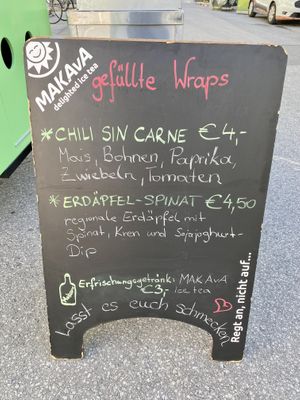 MAKAvA
delighted ice tea
gefüllte Wraps
*CHILI SIN CARNE €4,-
Mais, Bohnen, Paprika,
Zwiebeln, Tomaten
*ERDÄPFEL-SPINAT €4,50
regionale Erdäpfel mit
Spinat, Kren und Sojajoghurt-
Dip
Erfrischungsgetränk: MAKAvA
ice tea
€3,-
Lasst es euch schmecken
Regt an, nicht auf...